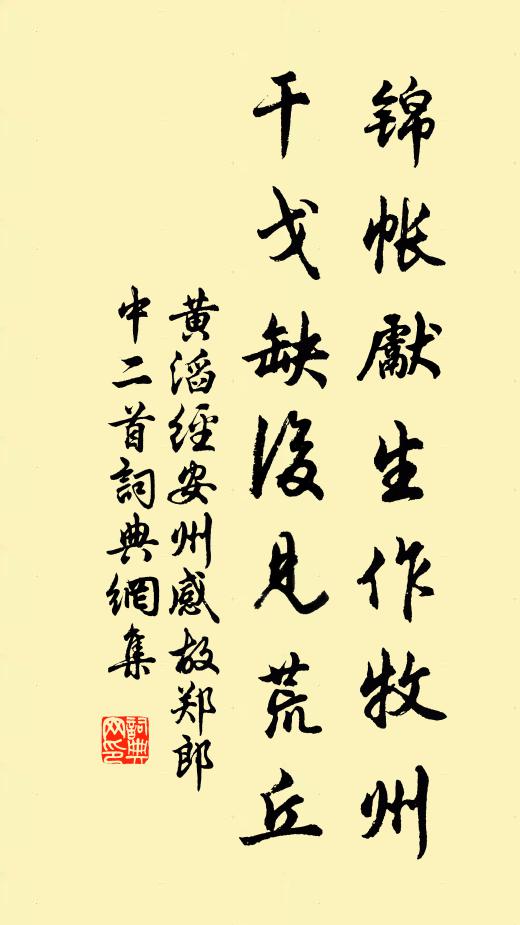 錦帳獻生作牧州
干戈缺後見荒丘
黃滔經安州感故郑郎
中二首詞典網集
詞典
网印